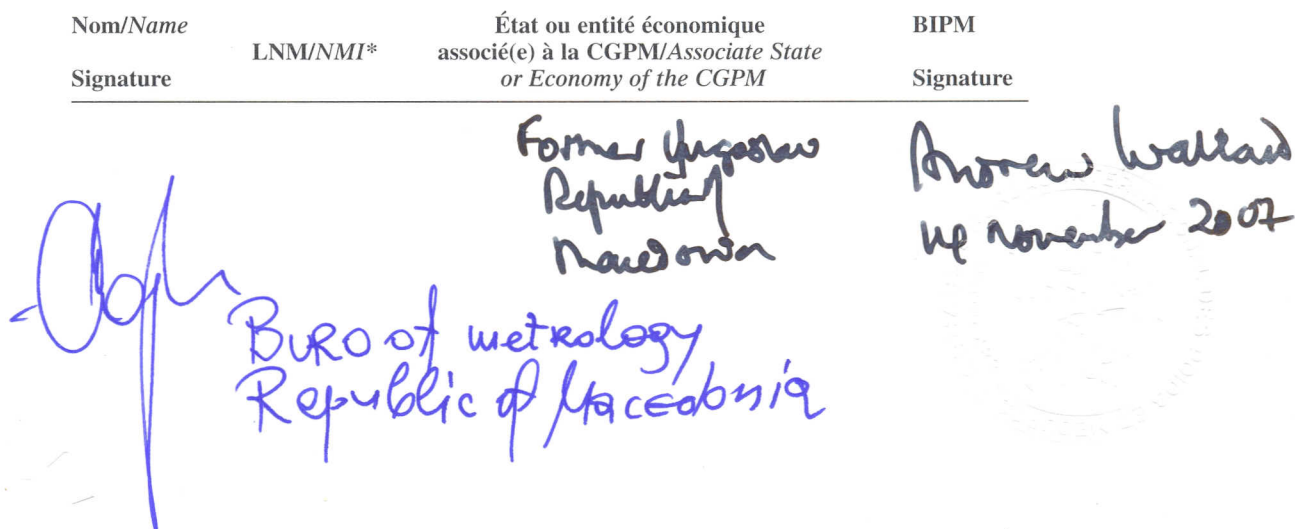 Nom/Name
LNM/NMI*
Signature
État ou entité économique
associé(e) à la CGPM/Associate State
or Economy of the CGPM
BIPM
Signature
Former Yugoslav
Republic of
Macedonia
Andrew Wallard
November 2007
BURO of metrology
Republic of Macedonia